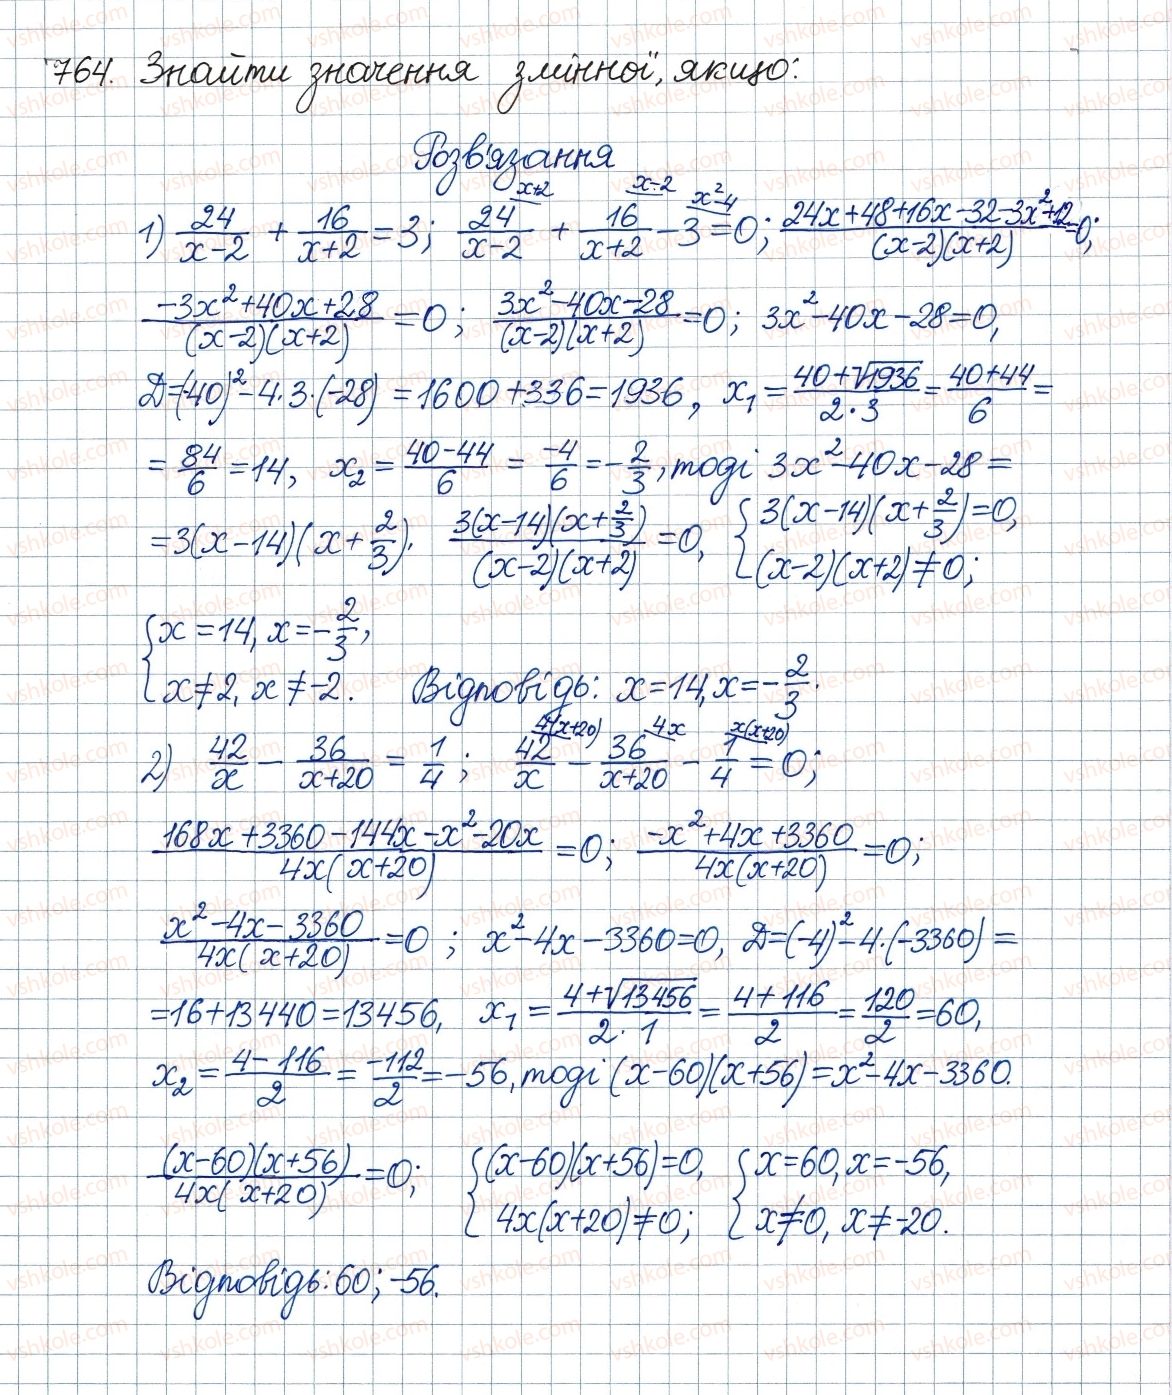 764. Знайти значення змінної, якщо:
Розв'язання
1) 24/(x-2) + 16/(x+2) = 3; 24/(x-2) ^(x+2) + 16/(x+2) ^(x-2) - 3 ^(x²-4) = 0; (24x+48+16x-32-3x²+12)/((x-2)(x+2)) = 0;
(-3x²+40x+28)/((x-2)(x+2)) = 0; (3x²-40x-28)/((x-2)(x+2)) = 0; 3x²-40x-28=0,
D=(-40)²-4·3·(-28) = 1600+336=1936, x₁ = (40+√1936)/(2·3) = (40+44)/6 =
= 84/6 = 14, x₂ = (40-44)/6 = -4/6 = -2/3, тоді 3x²-40x-28 =
= 3(x-14)(x+2/3). 3(x-14)(x+2/3)/((x-2)(x+2)) = 0, { 3(x-14)(x+2/3)=0,
(x-2)(x+2)≠0;
{ x=14, x=-2/3,
x≠2, x≠-2. Відповідь: x=14, x=-2/3.
2) 42/x - 36/(x+20) = 1/4; 42/x ^(4(x+20)) - 36/(x+20) ^(4x) - 1/4 ^(x(x+20)) = 0;
(168x+3360-144x-x²-20x)/(4x(x+20)) = 0; (-x²+4x+3360)/(4x(x+20)) = 0;
(x²-4x-3360)/(4x(x+20)) = 0; x²-4x-3360=0, D=(-4)²-4·(-3360) =
=16+13440=13456, x₁ = (4+√13456)/(2·1) = (4+116)/2 = 120/2 = 60,
x₂ = (4-116)/2 = -112/2 = -56, тоді (x-60)(x+56)=x²-4x-3360.
(x-60)(x+56)/(4x(x+20)) = 0; { (x-60)(x+56)=0, { x=60, x=-56,
4x(x+20)≠0; x≠0, x≠-20.
Відповідь: 60; -56.